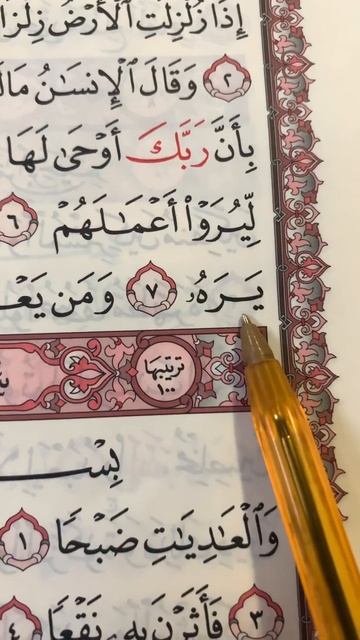 إِذَا زُلْزِلَتِ ٱلْأَرْضُ
٢ وَقَالَ ٱلْإِنسَٰنُ
بِأَنَّ رَبَّكَ أَوْحَىٰ لَهَا
لِّيُرَوْا۟ أَعْمَٰلَهُمْ ٦
يَرَهُۥ ٧ وَمَن
ترتيبها ١٠٠
وَٱلْعَٰدِيَٰتِ ضَبْحًا ١
٣ فَأَثَرْنَ بِهِۦ نَقْعًا ٤